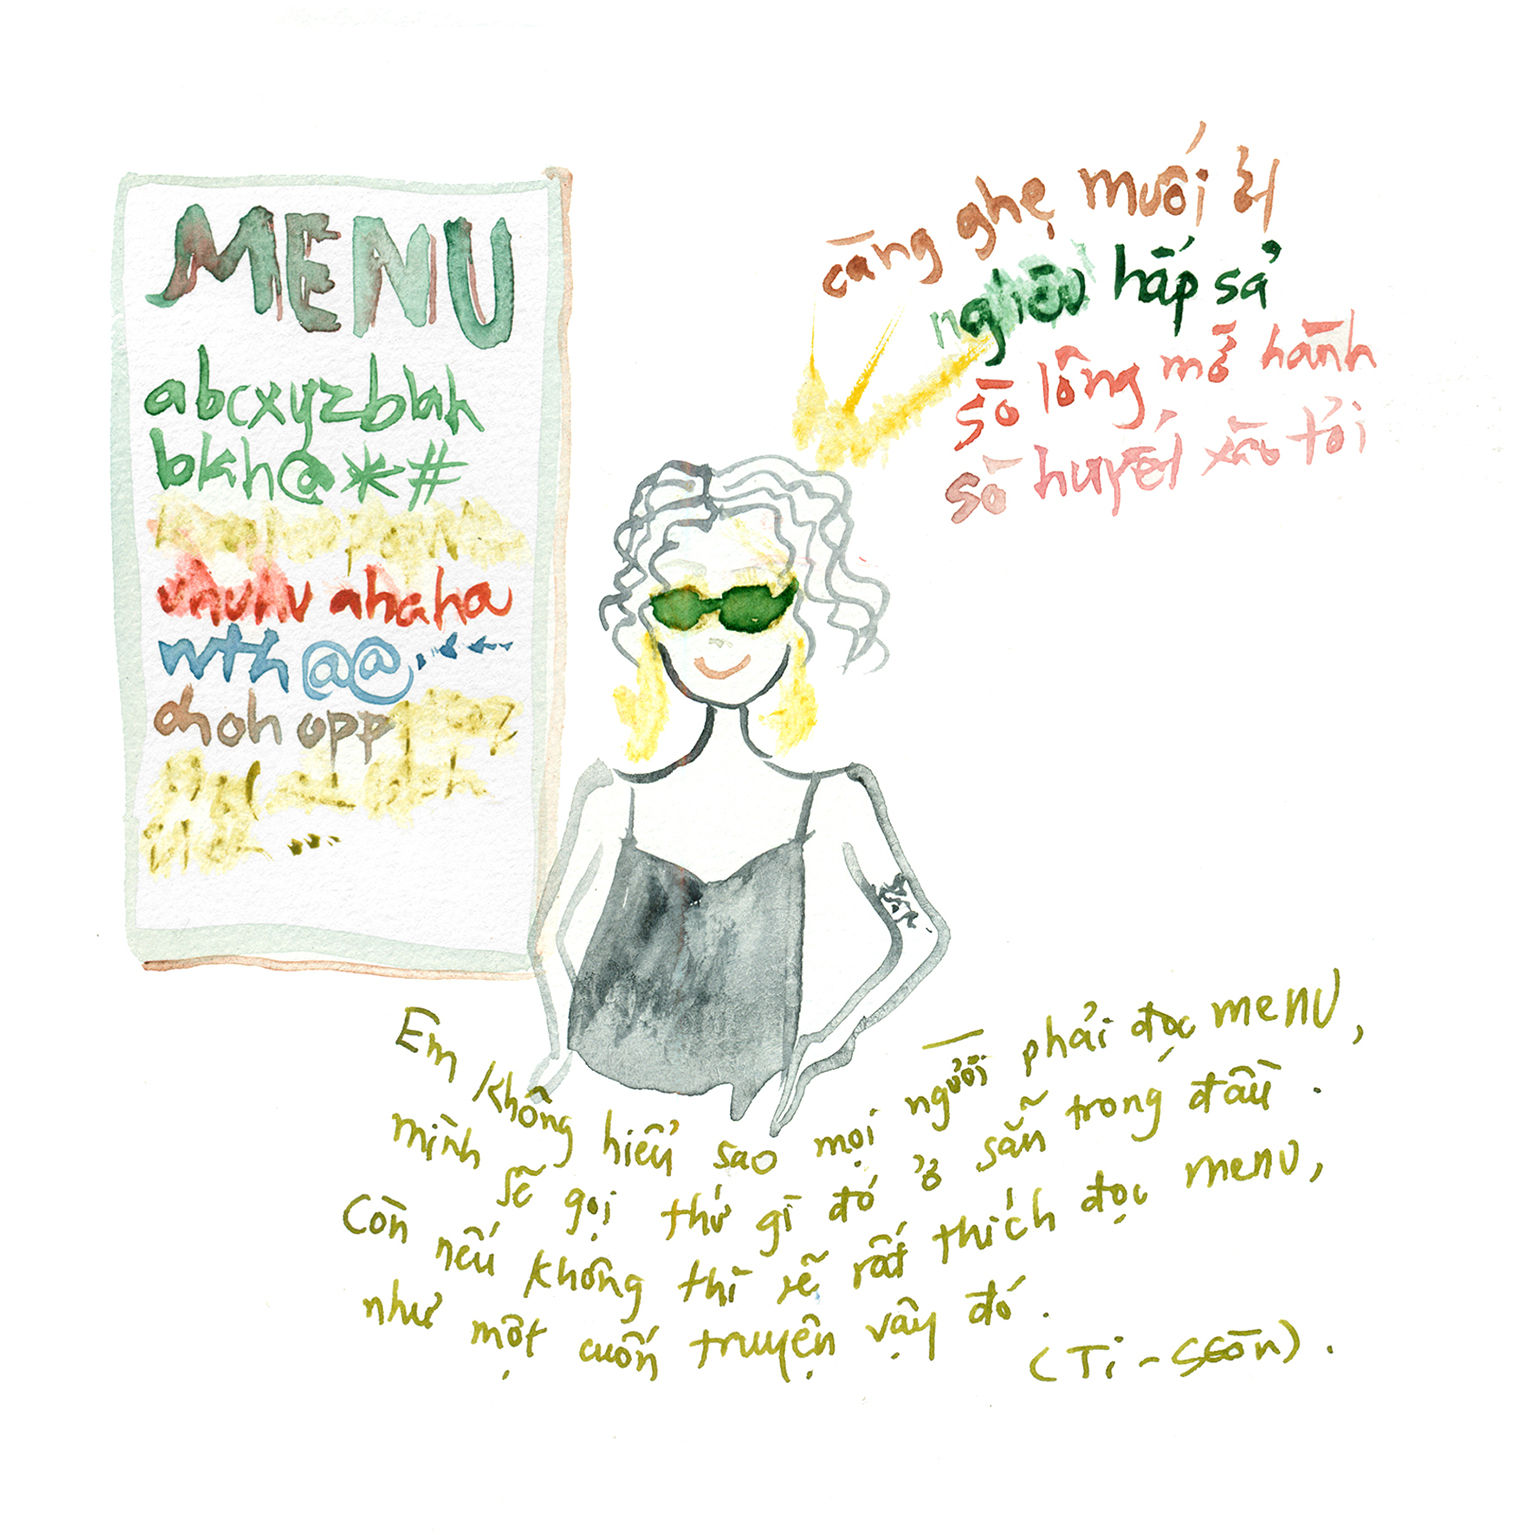 MENU
abcxyzblah
blah@*#
uhuhu ahaha
wth @@
ohoh opp
càng ghẹ muối ớt
nghêu hấp sả
sò lông mỡ hành
sò huyết xào tỏi
Em không hiểu sao mọi người phải đọc menu,
mình sẽ gọi thứ gì đó ở sẵn trong đầu.
Còn nếu không thì sẽ rất thích đọc menu,
như một cuốn truyện vậy đó.
(Ti - SGòn).